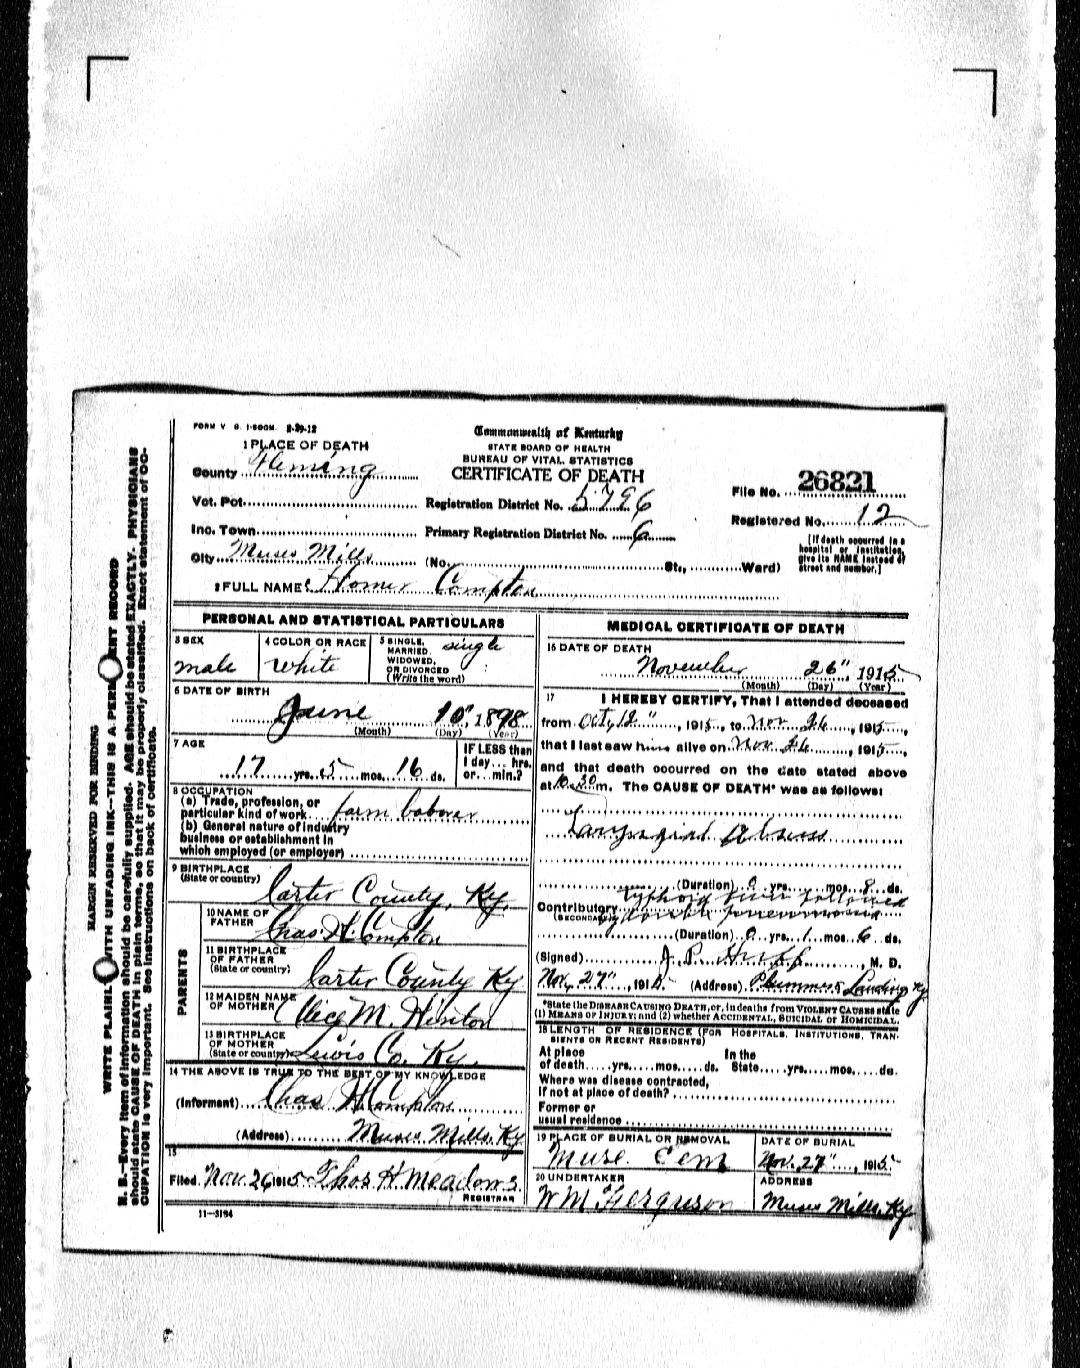 FORM V. S. 1-500M. 2-29-12
Commonwealth of Kentucky
STATE BOARD OF HEALTH
BUREAU OF VITAL STATISTICS
CERTIFICATE OF DEATH
1 PLACE OF DEATH
County Fleming
File No. 26821
Vot. Pct.
Registration District No. 5796
Registered No. 12
Inc. Town
Primary Registration District No. 6
[If death occurred in a
hospital or institution,
give its NAME instead of
street and number.]
City Muses Mills (No. St., Ward)
2 FULL NAME Homer Compton
PERSONAL AND STATISTICAL PARTICULARS
3 SEX
male
4 COLOR OR RACE
white
5 SINGLE,
MARRIED,
WIDOWED,
OR DIVORCED
(Write the word)
single
6 DATE OF BIRTH
June 10", 1898
(Month) (Day) (Year)
7 AGE
17 yrs. 5 mos. 16 ds.
IF LESS than
1 day... hrs.
or... min.?
8 OCCUPATION
(a) Trade, profession, or
particular kind of work farm laborer
(b) General nature of industry
business or establishment in
which employed (or employer)
9 BIRTHPLACE
(State or country)
Carter County, Ky.
PARENTS
10 NAME OF
FATHER
Chas. H. Compton
11 BIRTHPLACE
OF FATHER
(State or country)
Carter County Ky
12 MAIDEN NAME
OF MOTHER
Alice M. Hinton
13 BIRTHPLACE
OF MOTHER
(State or country)
Lewis Co. Ky.
14 THE ABOVE IS TRUE TO THE BEST OF MY KNOWLEDGE
(Informant) Chas H Compton
(Address) Muses Mills, Ky
15
Filed Nov. 26 1915 Thos H Meadows
REGISTRAR
11-3184
MEDICAL CERTIFICATE OF DEATH
16 DATE OF DEATH
November 26", 1915
(Month) (Day) (Year)
17 I HEREBY CERTIFY, That I attended deceased
from Oct, 12", 1915, to Nov 26, 1915,
that I last saw him alive on Nov. 26, 1915,
and that death occurred on the date stated above
at 10.30 m. The CAUSE OF DEATH* was as follows:
Abscess
(Duration) 0 yrs. mos. 8 ds.
Contributory typhoid fever followed
(SECONDARY) by pneumonia
(Duration) 0 yrs. 1 mos. 6 ds.
(Signed) J. P. M. D.
Nov, 27", 191 (Address) Plummers Landing Ky
*State the DISEASE CAUSING DEATH, or, in deaths from VIOLENT CAUSES state
(1) MEANS OF INJURY; and (2) whether ACCIDENTAL, SUICIDAL or HOMICIDAL.
18 LENGTH OF RESIDENCE (FOR HOSPITALS, INSTITUTIONS, TRAN-
SIENTS OR RECENT RESIDENTS)
At place In the
of death yrs. mos. ds. State yrs. mos. ds.
Where was disease contracted,
if not at place of death?
Former or
usual residence
19 PLACE OF BURIAL OR REMOVAL
Muse Cem
DATE OF BURIAL
Nov. 27", 1915
20 UNDERTAKER
W M Ferguson
ADDRESS
Muses Mills, Ky
MARGIN RESERVED FOR BINDING
WRITE PLAINLY WITH UNFADING INK—THIS IS A PERMANENT RECORD
N. B.—Every item of information should be carefully supplied. AGE should be stated EXACTLY. PHYSICIANS
should state CAUSE OF DEATH in plain terms, so that it may be properly classified. Exact statement of OC-
CUPATION is very important. See instructions on back of certificate.